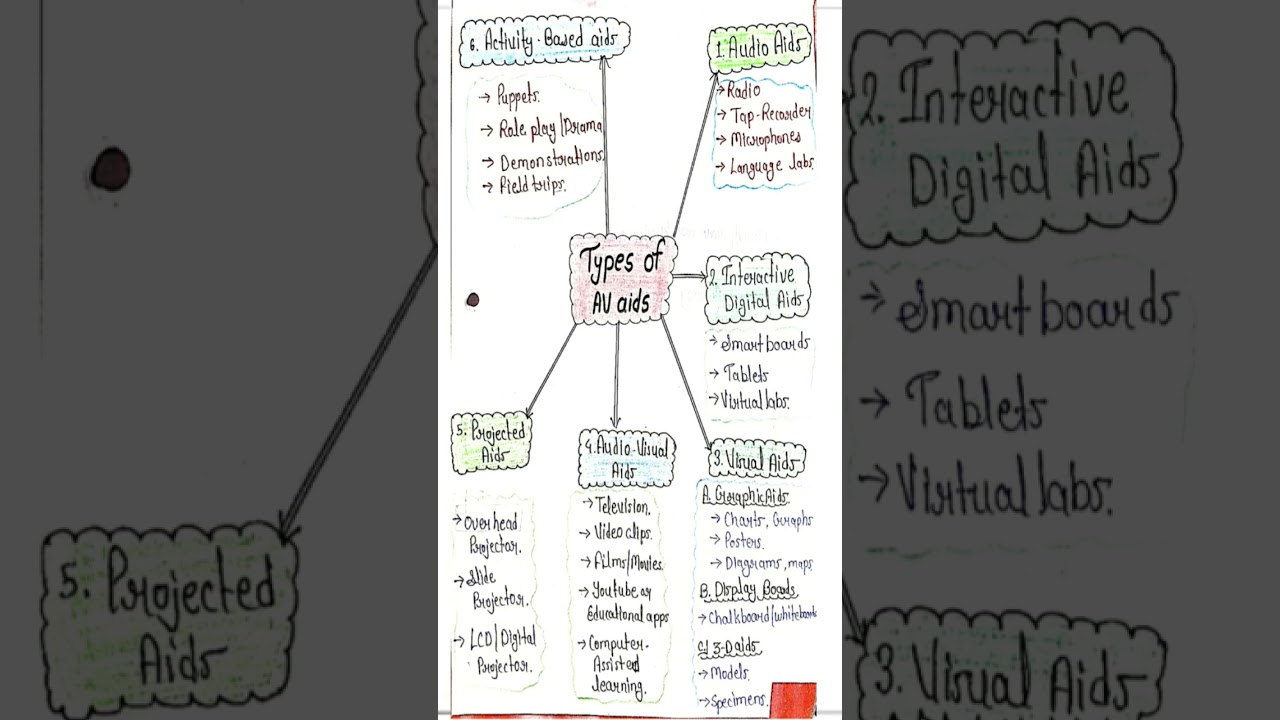 Types of
AV aids
1. Audio Aids
→ Radio
→ Tap-Recorder
→ Microphones
→ Language labs.
2. Interactive
Digital Aids
→ Smartboards
→ Tablets
→ Virtual labs.
3. Visual Aids
A. Graphic Aids
→ Charts, Graphs
→ Posters.
→ Diagrams, maps
B. Display Boards
→ Chalkboard/whiteboards
C) 3-D aids
→ Models.
→ Specimens.
4. Audio-Visual
Aids
→ Television.
→ Video clips.
→ Films/Movies.
→ Youtube or
Educational apps
→ Computer-
Assisted
learning.
5. Projected
Aids
→ Overhead
Projector.
→ Slide
Projector.
→ LCD/Digital
Projector.
6. Activity-Based aids
→ Puppets.
→ Role play/Drama
→ Demonstrations.
→ Field trips.
2. Interactive
Digital Aids
→ Smartboards
→ Tablets
→ Virtual labs.
3. Visual Aids
5. Projected
Aids